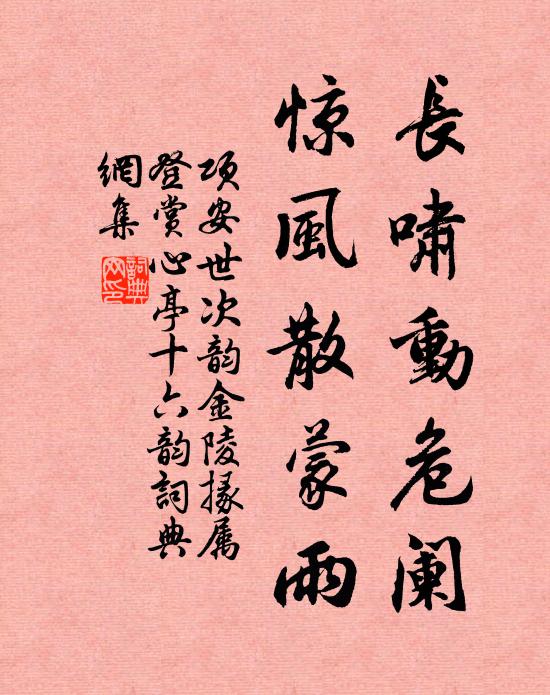 長啸動危阑
惊風散蒙雨
项安世次韵金陵掾属
登赏心亭十六韵詞典
網集
詞典網印